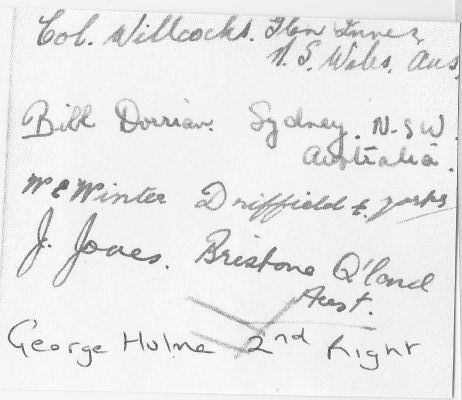 Col. Willcocks. Glen Innes
N. S. Wales. Aus
Bill Dorrian. Sydney. N.S.W.
Australia.
W E Winter Driffield E. Yorks
J. Jones. Brisbane Q'land
Aust.
George Hulme 2nd Right